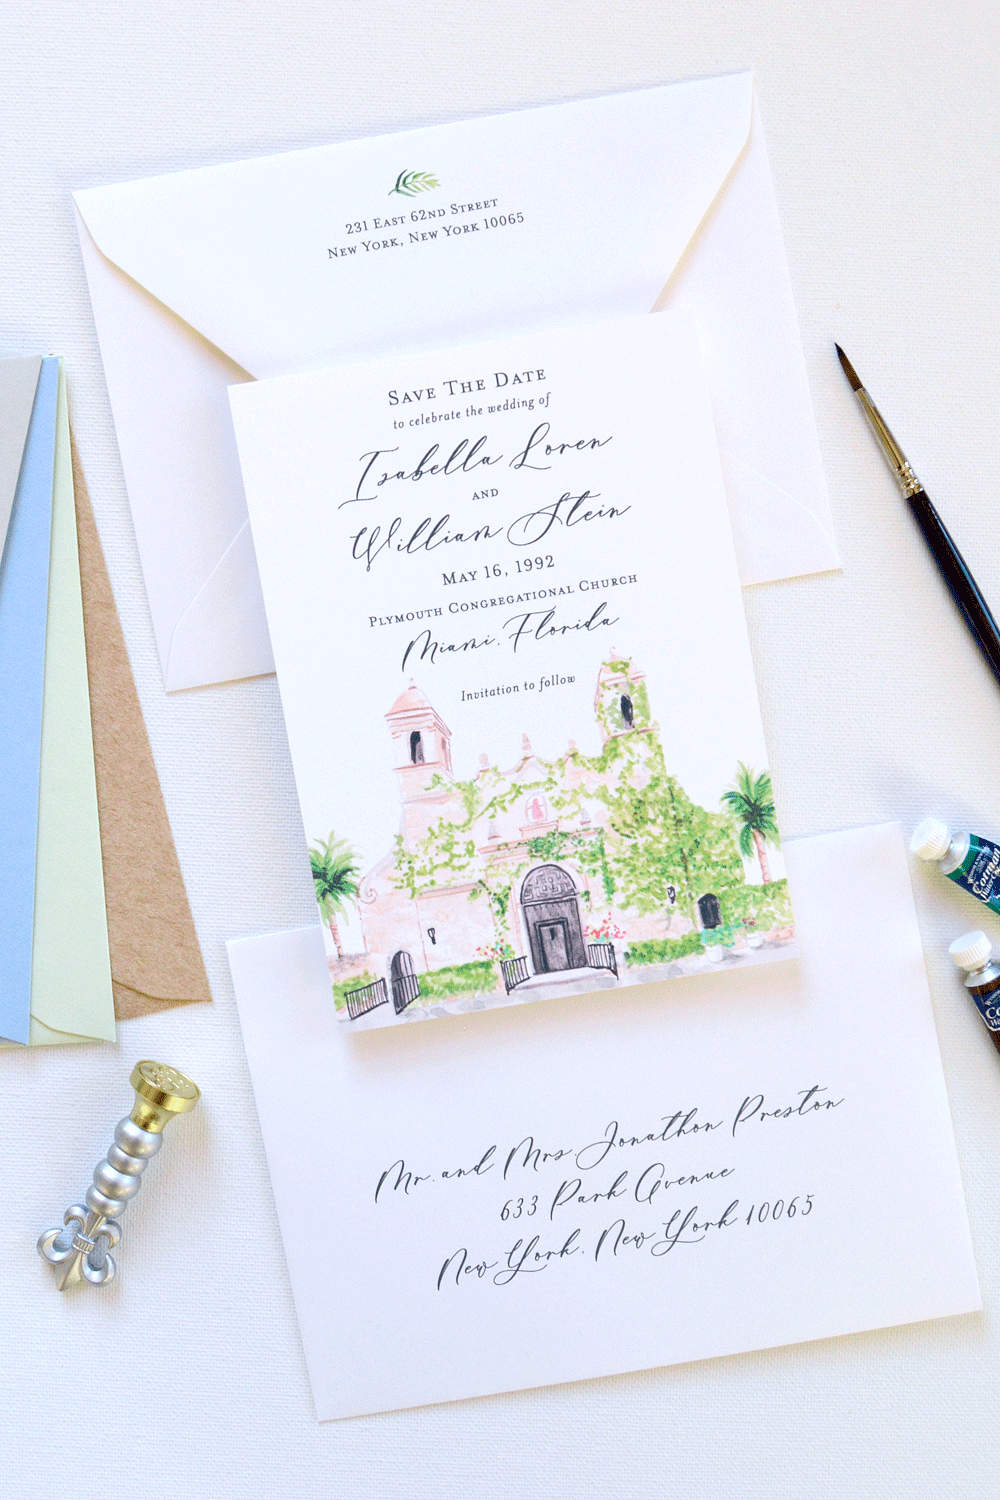 231 East 62nd Street
New York, New York 10065
Save The Date
to celebrate the wedding of
Isabella Loren
and
William Stein
May 16, 1992
Plymouth Congregational Church
Miami, Florida
Invitation to follow
Mr. and Mrs. Jonathon Preston
633 Park Avenue
New York, New York 10065